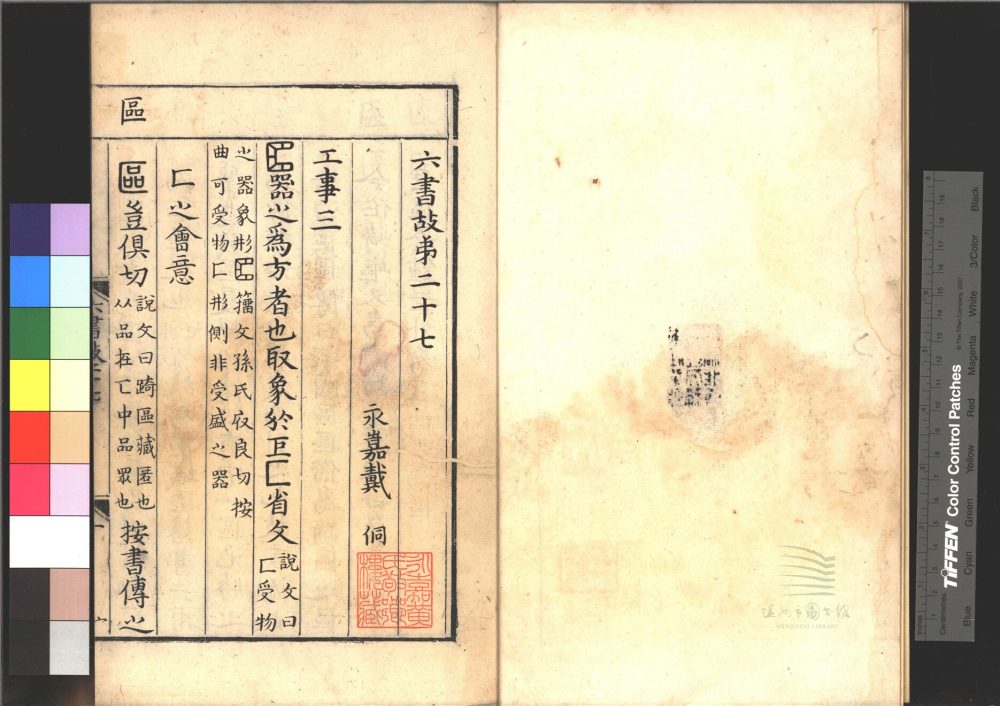 六書故弟二十七
永嘉戴 侗
工事三
匚器之為方者也取象於𠥓匚省文 說文曰匚受物
之器象形 籒文孫氏府良切按
曲可受物匚形側非受盛之器
匚之會意
區
區豈俱切 說文曰踦區藏匿也
从品在匸中品眾也 按書傳之
六書故二十七
永嘉黃氏 樓藏
溫州市圖書館
WENZHOU LIBRARY
TIFFEN Color Control Patches
© The Tiffen Company, 2007
Blue Cyan Green Yellow Red Magenta White 3/Color Black
Inches
Centimetres